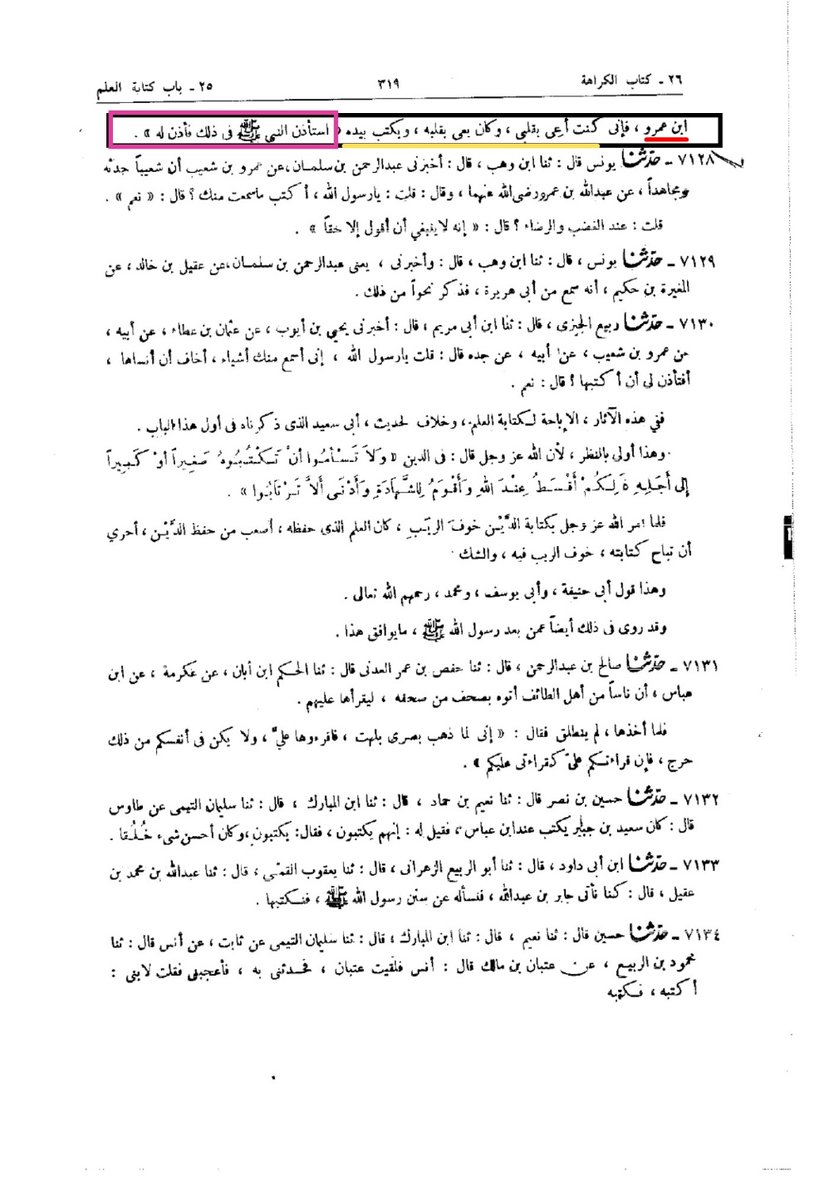 ٢٦ - كتاب الكراهة ٣١٩ ٢٥ - باب كتابة العلم
ابن عمرو ، فإنى كنت أعِى بقلبى ، وكان يعى بقلبه ، ويكتب بيده « استأذن النبى ﷺ فى ذلك فأذن له » .
٧١٢٨ - حدّثنا يونس قال : ثنا ابن وهب ، قال : أخبرنى عبدالرحمن بن سلمان ، عن عمرو بن شعيب أن شعيباً حدثه
ومجاهداً ، عن عبدالله بن عمرو رضى الله عنهما ، وقال : قلت : يارسول الله ، أكتب ماسمعت منك ؟ قال : « نعم » .
قلت : عند الغضب والرضاء ؟ قال : « إنه لاينبغي أن أقول إلا حقاً » .
٧١٢٩ - حدّثنا يونس ، قال : ثنا ابن وهب ، قال : وأخبرنى ، يعنى عبدالرحمن بن سلمان ، عن عقيل بن خالد ، عن
المغيرة بن حكيم ، أنه سمع من أبى هريرة ، فذكر نحواً من ذلك .
٧١٣٠ - حدّثنا ربيع الجيزى ، قال : ثنا ابن أبى مريم ، قال : أخبرنى يحيى بن أيوب ، عن عثمان بن عطاء ، عن أبيه ،
عن عمرو بن شعيب ، عن أبيه ، عن جده قال : قلت يارسول الله ، إنى أسمع منك أشياء ، أخاف أن أنساها ،
أفتأذن لى أن أكتبها ؟ قال : نعم .
فنى هذه الآثار ، الإباحة لكتابة العلم ، وخلاف لحديث ، أبى سعيد الذى ذكرناه فى أول هذا الباب .
وهذا أولى بالنظر ، لأن الله عز وجل قال : فى الدين « وَلاَ تَسْأَمُوا أَنْ تَكْتُبُوهُ صَغِيراً أَوْ كَبِيراً
إِلَى أَجَلِهِ ذَلِكُمْ أَقْسَطُ عِنْدَ اللهِ وَأَقْوَمُ لِلشَّهَادَةِ وَأَدْنَى أَلاَّ تَرْتَابُوا » .
فلما أمر الله عز وجل بكتابة الدَّيْن خوفَ الريْبِ ، كان العلم الذى حفظه ، أصعب من حفظ الدَّيْن ، أحري
أن تباح كتابته ، خوف الريب فيه ، والشك
وهذا قول أبى حنيفة ، وأبى يوسف ، ومحمد ، رحمهم الله تعالى .
وقد روى فى ذلك أيضاً عمن بعد رسول الله ﷺ ، مايوافق هذا .
٧١٣١ - حدّثنا صالح بن عبدالرحمن ، قال : ثنا حفص بن عمر العدنى قال : ثنا الحكم ابن أبان ، عن عكرمة ، عن ابن
عباس ، أن ناساً من أهل الطائف أتوه بصحف من صحفه ، ليقرأها عليهم .
فلما أخذها ، لم ينطلق فقال : « إنى لما ذهب بصرى بلهت ، فاقرءوها علىَّ ، ولا يكن فى أنفسكم من ذلك
حرج ، فإن قراءتكم علىّ كقراءتى عليكم » .
٧١٣٢ - حدّثنا حسين بن نصر قال : ثنا نعيم بن حماد ، قال : ثنا ابن المبارك ، قال : ثنا سليمان التيمى عن طاوس
قال : كان سعيد بن جبير يكتب عند ابن عباس ، فقيل له : إنهم يكتبون ، فقال : يكتبون ، وكان أحسن شىء خُلُقا .
٧١٣٣ - حدّثنا ابن أبى داود ، قال : ثنا أبو الربيع الزهرانى ، قال : ثنا يعقوب القمّى ، قال : ثنا عبدالله بن محمد بن
عقيل ، قال : كنا نأتى جابر بن عبدالله ، فنسأله عن سنن رسول الله ﷺ ، فنكتبها .
٧١٣٤ - حدّثنا حسين قال : ثنا نعيم ، قال : ثنا ابن المبارك ، قال : ثنا سليمان التيمى عن ثابت ، عن أنس قال : ثنا
محمود بن الربيع ، عن عتبان بن مالك قال : أنس فلقيت عتبان ، فحدثنى به ، فأعجبنى فقلت لابنى :
أكتبه ، فكتبه